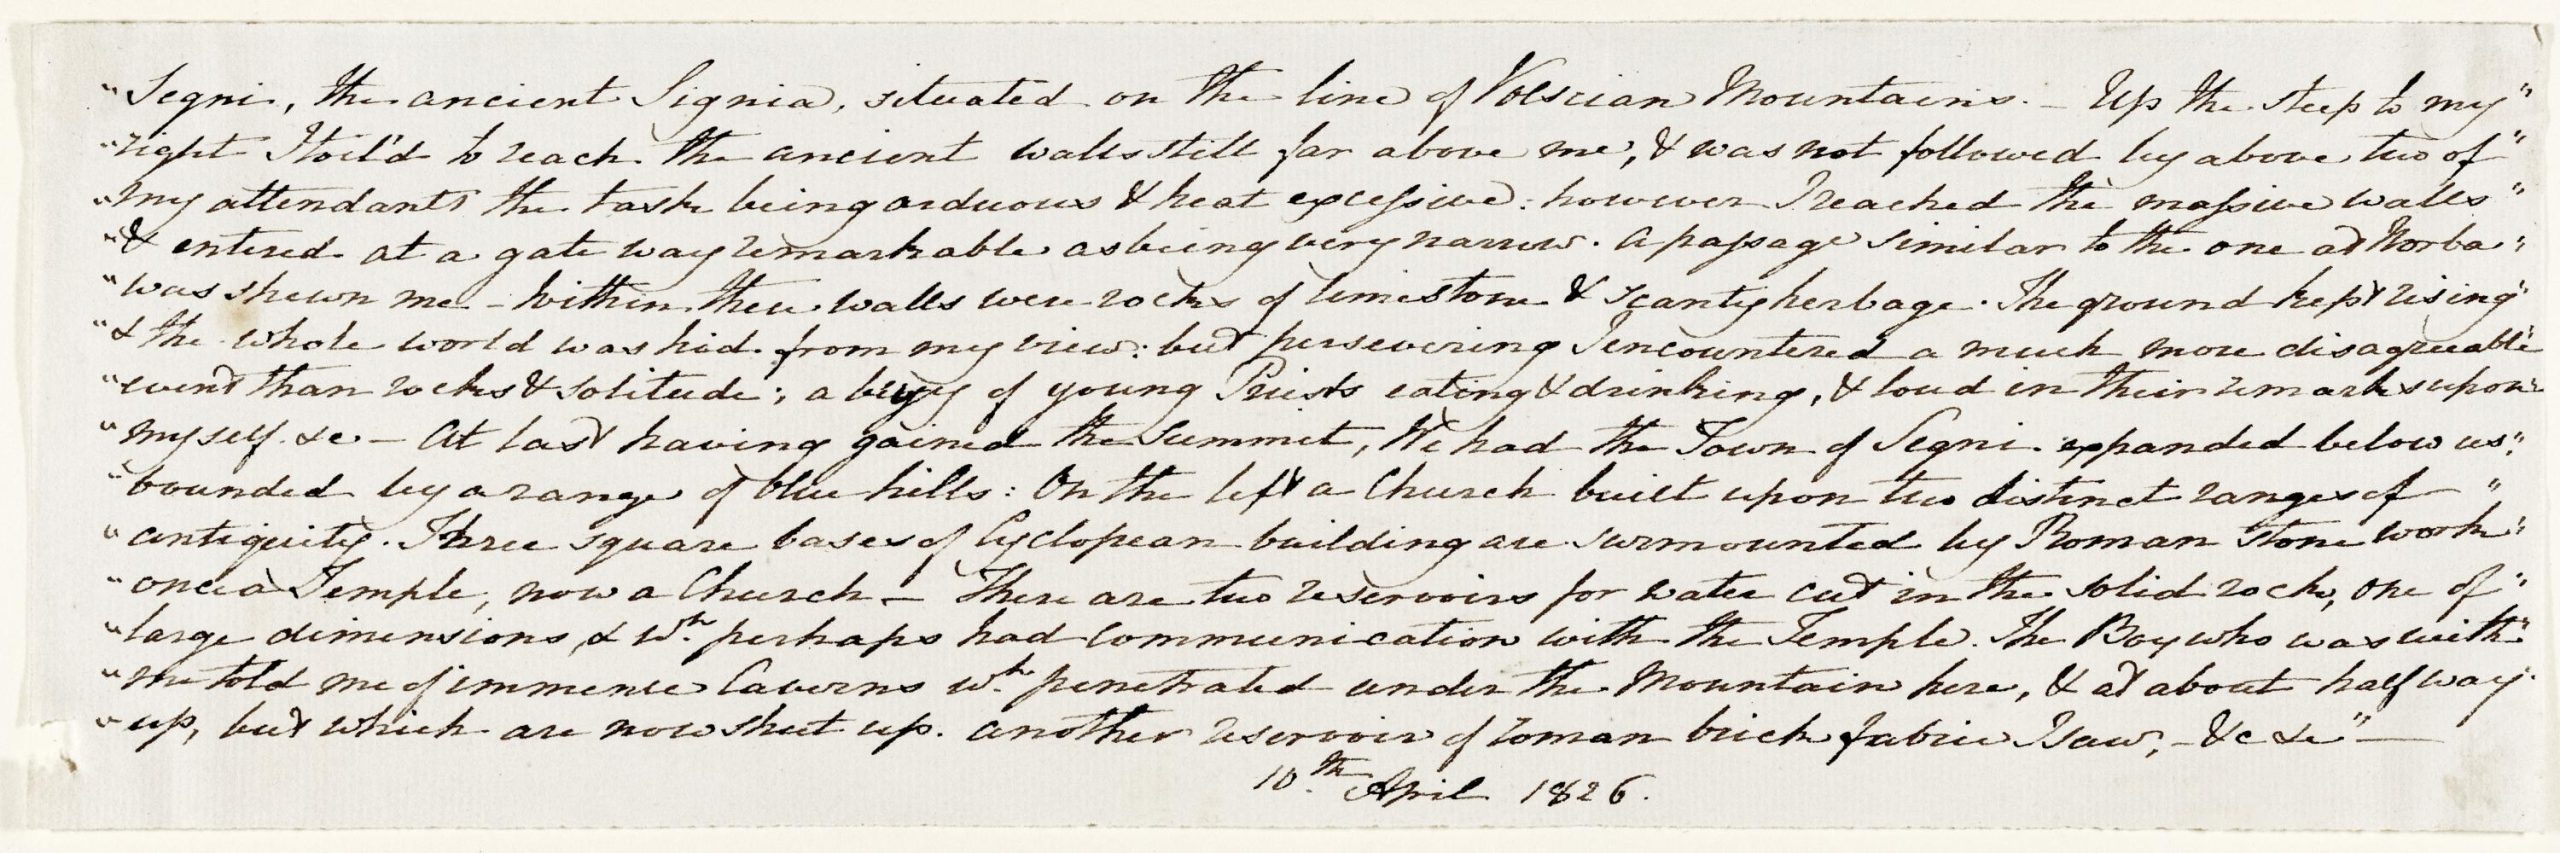 "Segni, the ancient Signia, situated on the line of Volscian Mountains. – Up the steep to my"
"right I toil'd to reach the ancient walls still far above me, & was not followed by above two of"
"my attendants the task being arduous & heat excessive: however I reached the massive walls"
"& entered at a gate way remarkable as being very narrow. a passage similar to the one at Norba"
"was shewn me – Within these walls were rocks of limestone & scanty herbage. The ground kept rising"
"& the whole world was hid from my view: but persevering I encountered a much more disagreeable"
"event than rocks & solitude; a bevy of young Priests eating & drinking, & loud in their remarks upon"
"myself &c – At last having gained the summit, We had the Town of Segni expanded below us"
"bounded by a range of blue hills: On the left a Church built upon two distinct ranges of – "
"antiquity. Three square bases of Cyclopean building are surmounted by Roman Stone work"
"once a Temple, now a Church – There are two reservoirs for water cut in the solid rock, one of"
"large dimensions, & wh. perhaps had communication with the Temple. The Boy who was with"
"me told me of immense Caverns wh. penetrated under the Mountain here, & at about half way"
"up, but which are now shut up. another reservoir of roman brick fabric I saw, – &c &c" –
10.th April 1826.